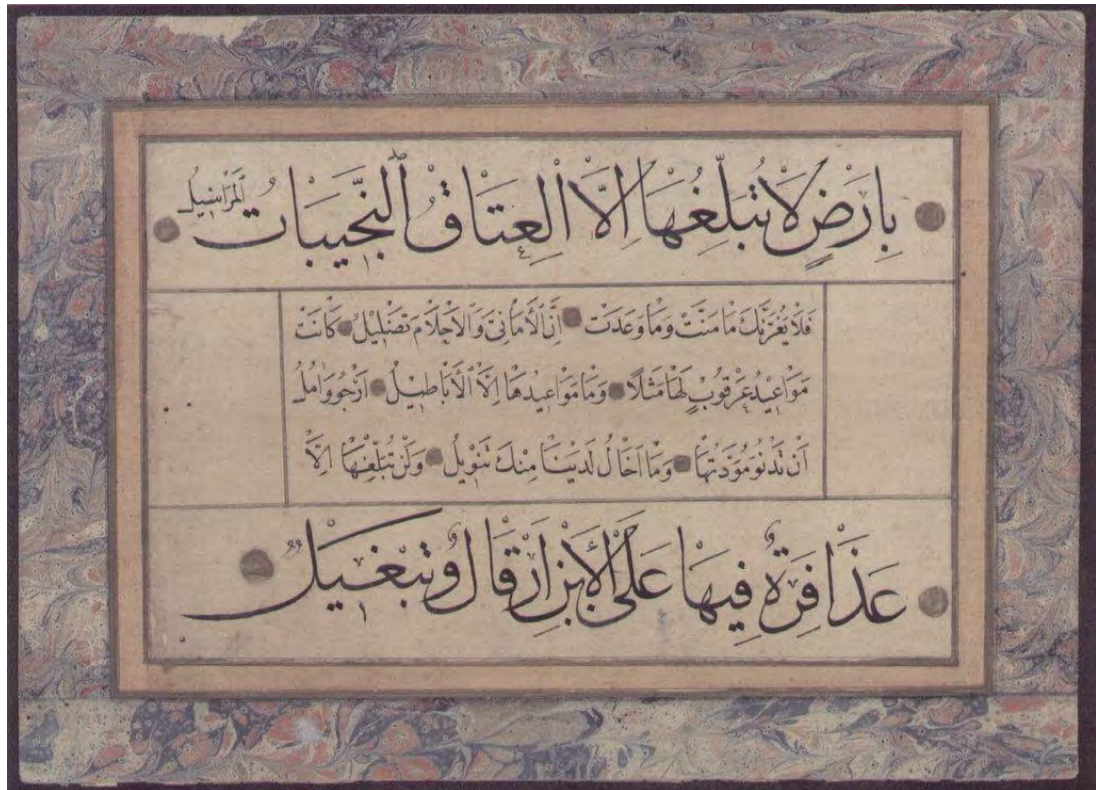 بِاَرْضٍ لَا تُبَلِّغُهَا اِلَّا الْعِتَاقُ النَّجِيبَاتُ الْمَرَاسِيلُ
فَلَا يَغُرَّنَّكَ مَا مَنَّتْ وَمَا وَعَدَتْ اِنَّ الْأَمَانِيَّ وَالْاَحْلَامَ تَضْلِيلُ كَانَتْ
مَوَاعِيدُ عُرْقُوبٍ لَهَا مَثَلًا وَمَا مَوَاعِيدُهَا اِلَّا الْأَبَاطِيلُ اَرْجُو وَاٰمُلُ
اَنْ تَدْنُو مَوَدَّتُهَا وَمَا اَخَالُ لَدَيْنَا مِنْكَ تَنْوِيلُ وَلَنْ تُبَلِّغَهَا اِلَّا
عَذَافِرَةٌ فِيهَا عَلَى الْأَيْنِ اِرْقَالٌ وَتَبْغِيلُ